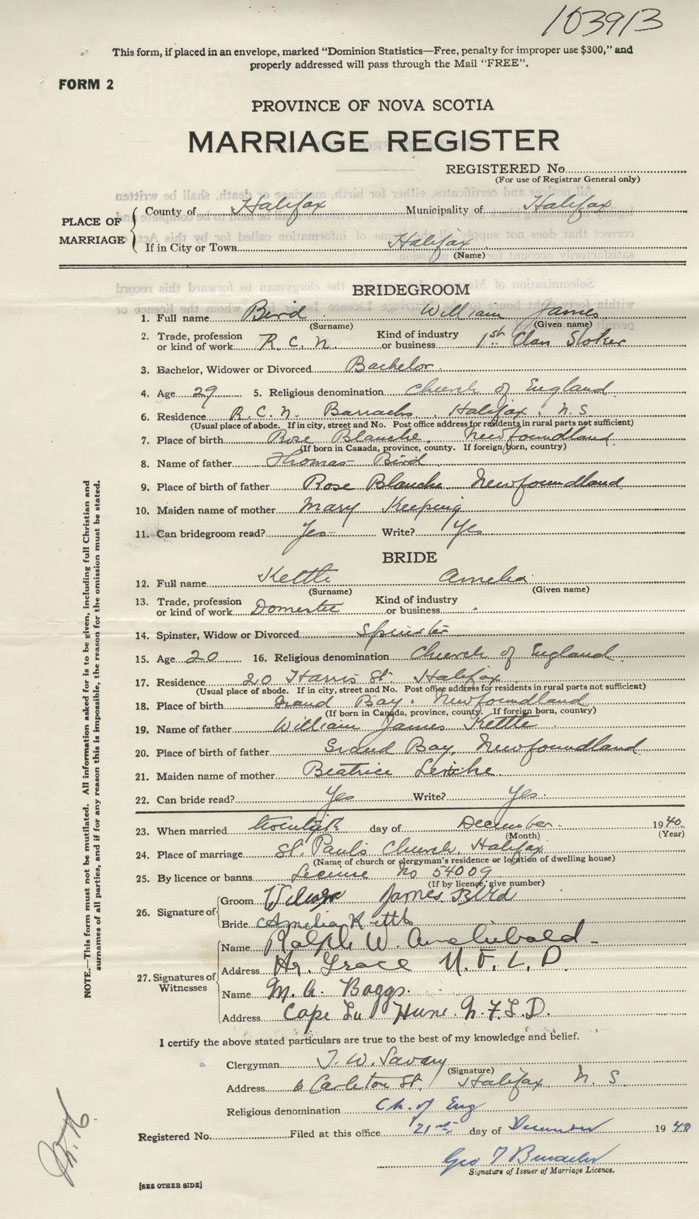 103913
This form, if placed in an envelope, marked "Dominion Statistics—Free, penalty for improper use $300," and
properly addressed will pass through the Mail "FREE".
FORM 2
PROVINCE OF NOVA SCOTIA
MARRIAGE REGISTER
REGISTERED No.
(For use of Registrar General only)
PLACE OF MARRIAGE
County of Halifax Municipality of Halifax
If in City or Town Halifax
(Name)
BRIDEGROOM
1. Full name Bird William James
(Surname) (Given name)
2. Trade, profession or kind of work R.C.N. Kind of industry or business 1st Class Stoker
3. Bachelor, Widower or Divorced Bachelor
4. Age 29 5. Religious denomination Church of England
6. Residence R.C.N. Barracks, Halifax, N.S.
(Usual place of abode. If in city, street and No. Post office address for residents in rural parts not sufficient)
7. Place of birth Rose Blanche Newfoundland
(If born in Canada, province, county. If foreign born, country)
8. Name of father Thomas Bird
9. Place of birth of father Rose Blanche Newfoundland
10. Maiden name of mother Mary Keeping
11. Can bridegroom read? Yes Write? Yes
BRIDE
12. Full name Kettle Amelia
(Surname) (Given name)
13. Trade, profession or kind of work Domestic Kind of industry or business
14. Spinster, Widow or Divorced Spinster
15. Age 20 16. Religious denomination Church of England
17. Residence 20 Harris St. Halifax
(Usual place of abode. If in city, street and No. Post office address for residents in rural parts not sufficient)
18. Place of birth Grand Bay, Newfoundland
(If born in Canada, province, county. If foreign born, country)
19. Name of father William James Kettle
20. Place of birth of father Grand Bay, Newfoundland
21. Maiden name of mother Beatrice
22. Can bride read? Yes Write? Yes
23. When married day of December 1940
(Month) (Year)
24. Place of marriage St. Paul's Church, Halifax
(Name of church or clergyman's residence or location of dwelling house)
25. By licence or banns License No 54009
(If by licence, give number)
26. Signature of
Groom James Bird
Bride Amelia Kettle
27. Signatures of Witnesses
Name Ralph W. Archibald
Address Hr. Grace N.F.L.D.
Name M. A. Boggs.
Address Cape La Hune. N.F.L.D.
I certify the above stated particulars are true to the best of my knowledge and belief.
Clergyman T. W. Savary
(Signature)
Address 6 Carleton St., Halifax N.S.
Religious denomination Ch. of Eng
Registered No. Filed at this office 21st day of December 1940
Geo T
Signature of Issuer of Marriage Licence.
[SEE OTHER SIDE]
NOTE.—This form must not be mutilated. All information asked for is to be given, including full Christian and
surnames of all parties, and if for any reason this is impossible, the reason for the omission must be stated.